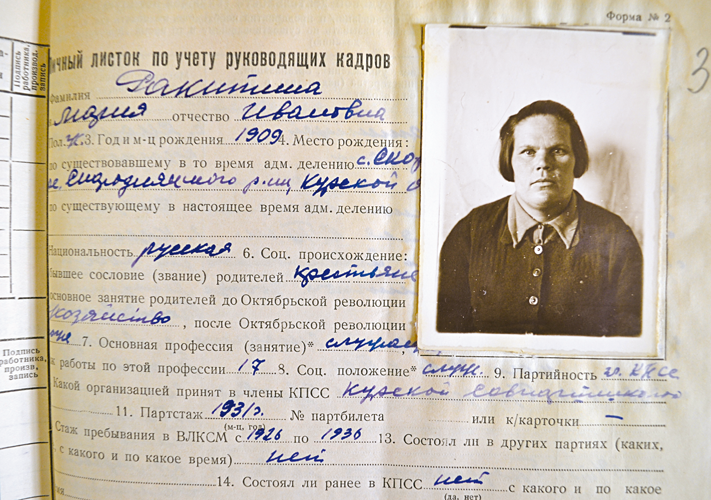 Форма № 2
3
Личный листок по учету руководящих кадров
Фамилия Ракитина
Мария отчество Ивановна
Пол ж. 3. Год и м-ц рождения 1909 4. Место рождения:
по существовавшему в то время адм. делению с. Скор
Скороднянского р-на Курской о
по существующему в настоящее время адм. делению
Национальность русская 6. Соц. происхождение:
бывшее сословие (звание) родителей крестьяне
основное занятие родителей до Октябрьской революции
хозяйство, после Октябрьской революции
7. Основная профессия (занятие)* служащ
ж работы по этой профессии 17 8. Соц. положение* служ. 9. Партийность чл. КПСС
Какой организацией принят в члены КПСС Курской совпартшколой
11. Партстаж 1931 г. № партбилета или к/карточки —
(м-ц, год)
Стаж пребывания в ВЛКСМ с 1926 по 1936 13. Состоял ли в других партиях (каких,
с какого и по какое время) нет
14. Состоял ли ранее в КПСС нет с какого и по какое
(да, нет)
Подпись
работника,
производ.
запись
Подпись
работника,
произв.
запись